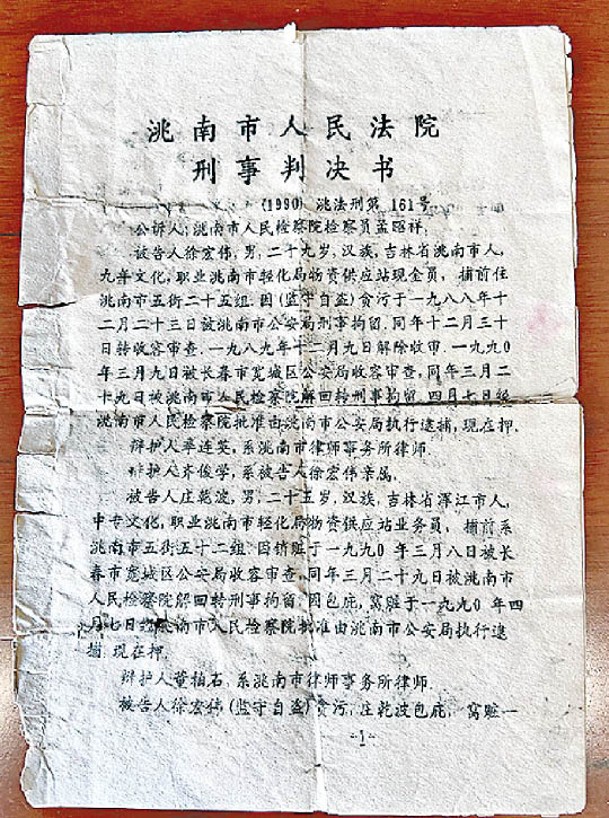 洮南市人民法院
刑事判决书
(1990) 洮法刑第 161号
公诉人:洮南市人民检察院检察员孟昭祥,
被告人徐宏伟,男,二十九岁,汉族,吉林省洮南市人,
九年文化,职业洮南市轻化局物资供应站现金员, 捕前住
洮南市五街二十五组.因(监守自盗)贪污于一九八八年十
二月二十三日被洮南市公安局刑事拘留.同年十二月三十
日转收容审查.一九八九年十二月九日解除收审.一九九0
年三月九日被长春市宽城区公安局收容审查,同年三月二
十九日被洮南市人民检察院解回转刑事拘留,四月七日经
洮南市人民检察院批准由洮南市公安局执行逮捕,现在押.
辩护人 连英,系洮南市律师事务所律师.
辩护人齐俊学,系被告人徐宏伟亲属,
被告人庄乾波,男,二十五岁,汉族,吉林省浑江市人,
中专文化,职业洮南市轻化局物资供应站业务员, 捕前系
洮南市五街五十二组.因销赃于一九九0年三月八日被长
春市宽城区公安局收容审查,同年三月二十九日被洮南市
人民检察院解回转刑事拘留.因包庇,窝赃于一九九0年四
月七日经洮南市人民检察院批准由洮南市公安局执行逮
捕,现在押.
辩护人董 石,系洮南市律师事务所律师.
被告人徐宏伟(监守自盗)贪污,庄乾波包庇, 窝赃一
-1-